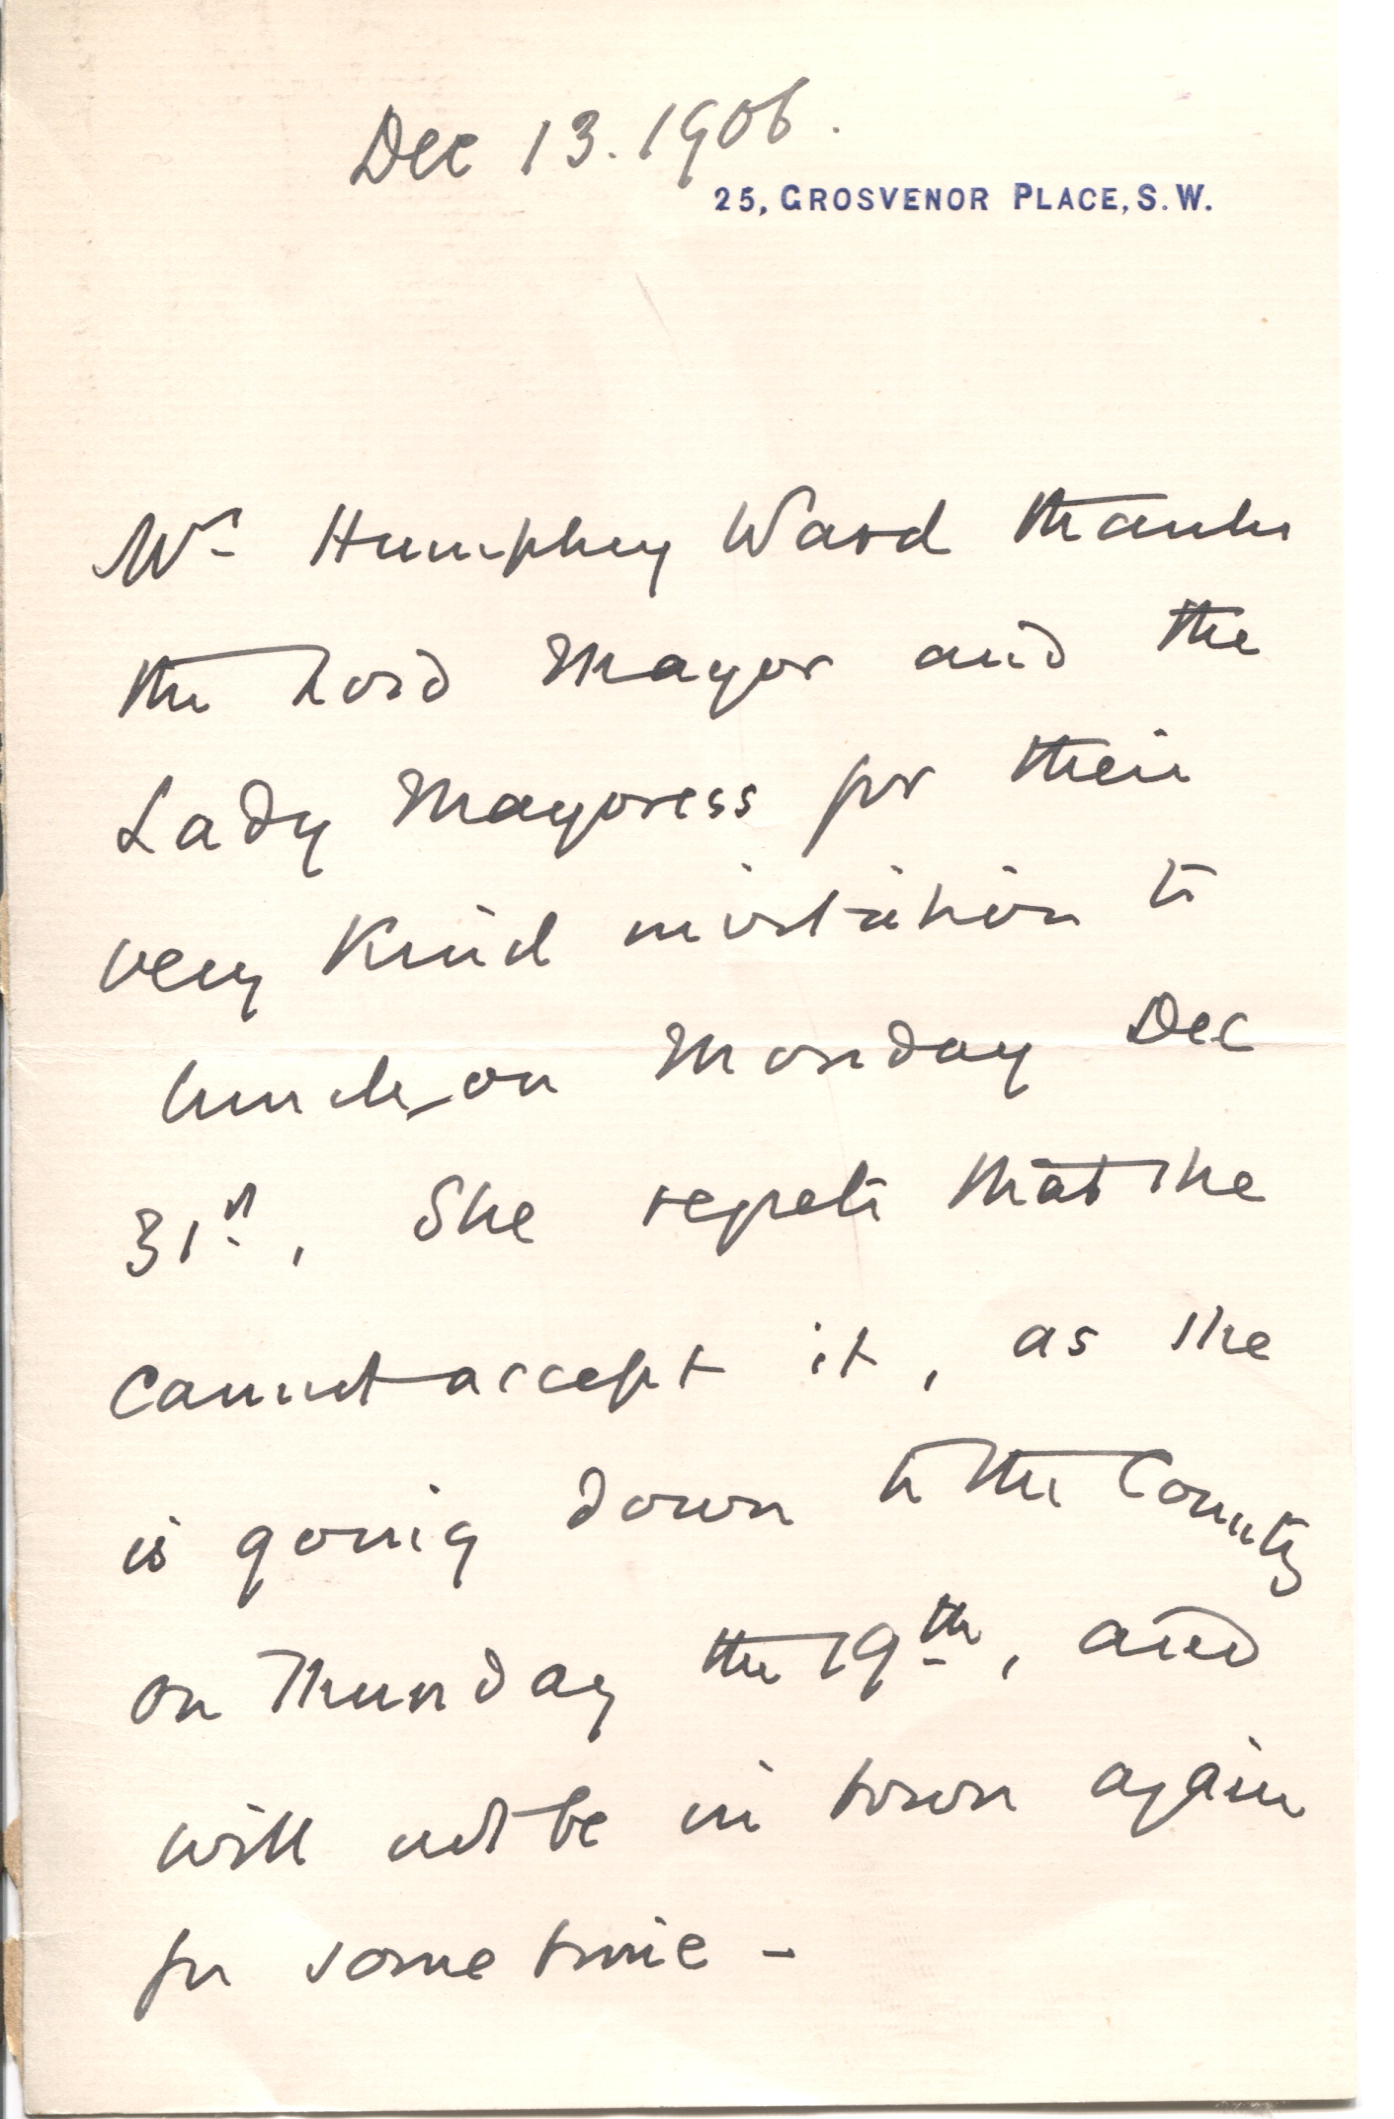 Dec 13. 1906.
25, GROSVENOR PLACE, S.W.
Mrs Humphry Ward thanks
the Lord Mayor and the
Lady Mayoress for their
very kind invitation to
lunch on Monday Dec
31st, She regrets that she
cannot accept it, as she
is going down to the Country
on Thursday the 19th, and
will not be in town again
for some time -